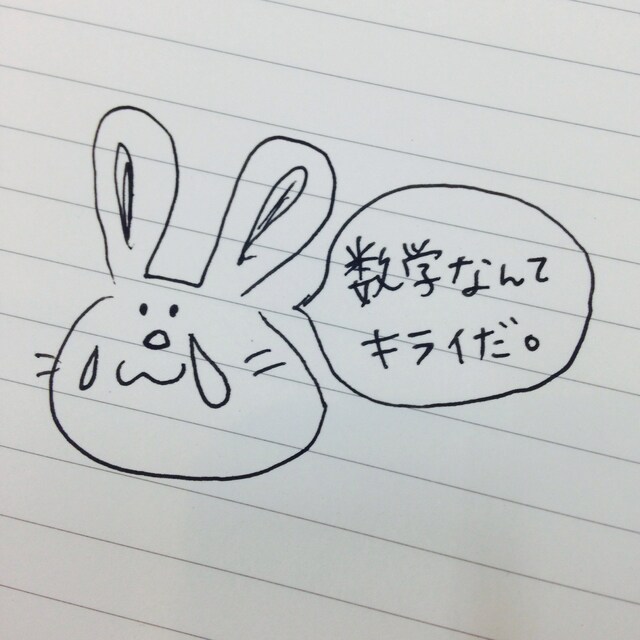 数学なんて
キライだ。